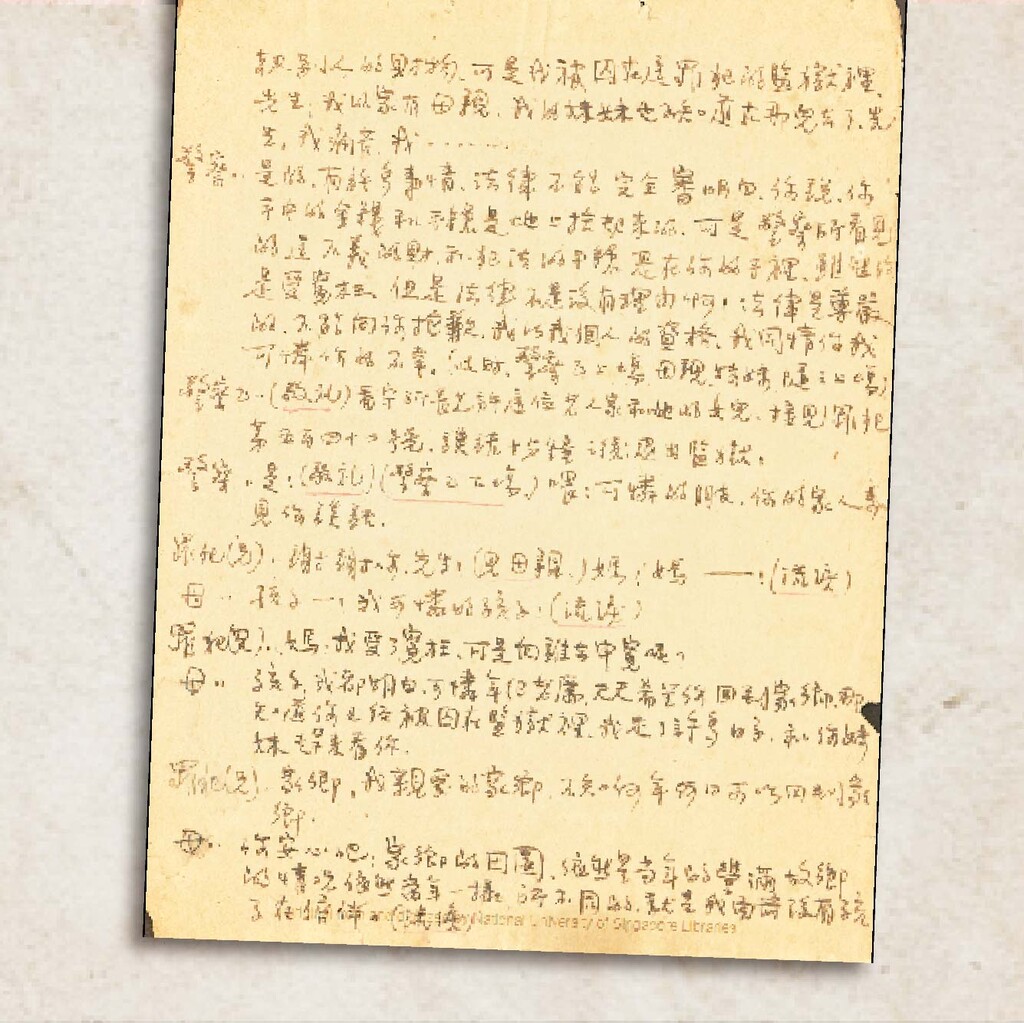 別人的財物，可是我被囚在這罪犯的監獄裡，
先生，我的家有母親，我的妹妹也不知道在那兒去了，先
生，我痛苦，我……
警察：是的，有許多事情，法律不能完全審明白，你說，你
手中的金錢和手鐲是地上拾起來的，可是警察所看見
的這不義的財和犯法的手鐲是在你的手裡，雖然你
是受冤枉，但是法律不是沒有理由啊，法律是尊嚴
的，不能向你抱歉，我以我個人的資格，我同情你我
可憐你的不幸。(此時，警察乙上場，母親妹妹隨之上場)
警察乙：(敬礼)看守所長允許這位老人家和她的女兒，接見罪犯
第五百四十二號，談話十分鐘之後退出監獄。
警察：是：(敬礼)(警察乙下場)喂：可憐的朋友，你的家人要
見你談話。
罪犯(兄)：謝謝，先生，(見母親)媽；媽——；(流淚)
母：孩子——，我可憐的孩子；(流淚)
罪犯(兄)：媽，我受了冤枉，可是向誰去申冤呢。
母：孩子，我都明白，可憐年紀老薦，天天希望你回到家鄉，那
知道你已經被囚在監獄裡，我走了許多日子，和你妹
妹走來看你。
罪犯(兄)：家鄉，我親愛的家鄉，不知何年何日可以回到家
鄉。
母：你安心吧；家鄉的田園，依然是當年的豐滿，故鄉
的情況依然當年一樣，所不同的，就是我面前沒有孩
子在倍伴 (流淚)
National University of Singapore Libraries